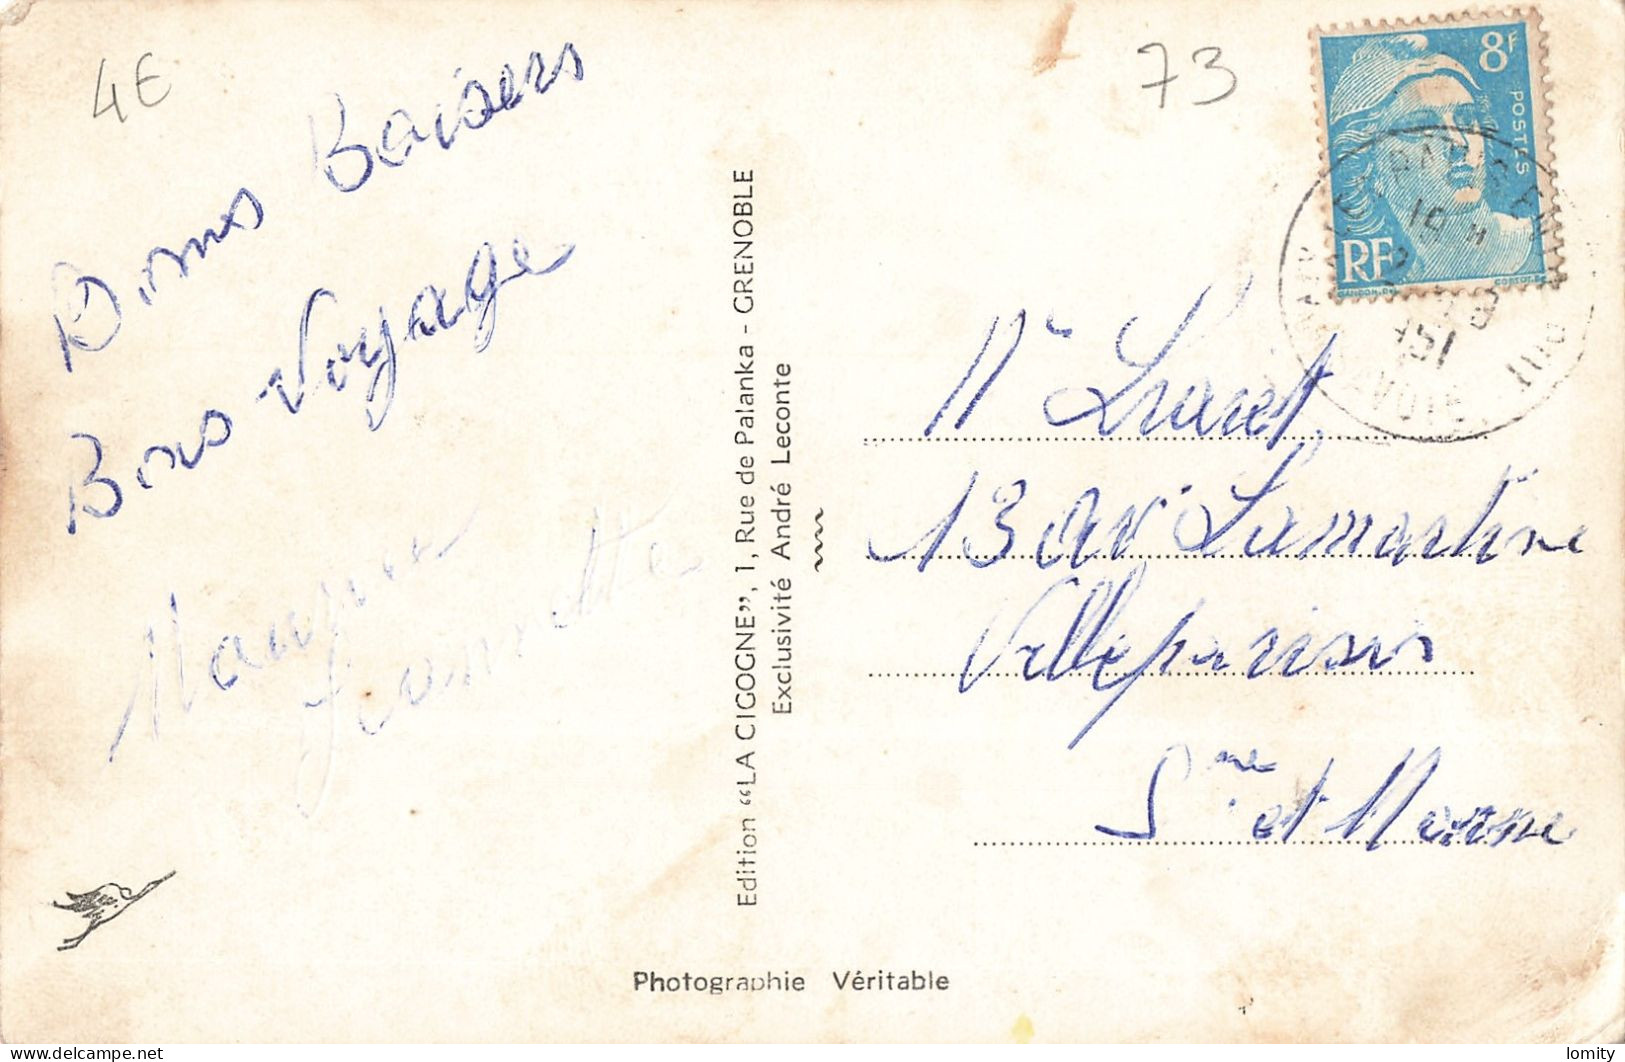 4E
73
8F
POSTES
RF
GANDON. DEL
Bons Baisers
Bons Voyage
Maurice
Jeannette
Edition “LA CIGOGNE”, 1, Rue de Palanka - GRENOBLE
Exclusivité André Leconte
Mr
13 av Lamartine
Villeparisis
Sne et Marne
Photographie Véritable
lomity